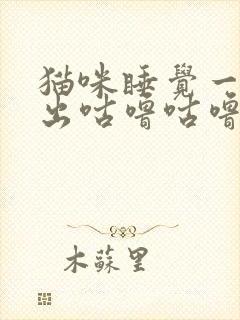 猫咪睡覺一
出咕嚕咕嚕
木蘇里